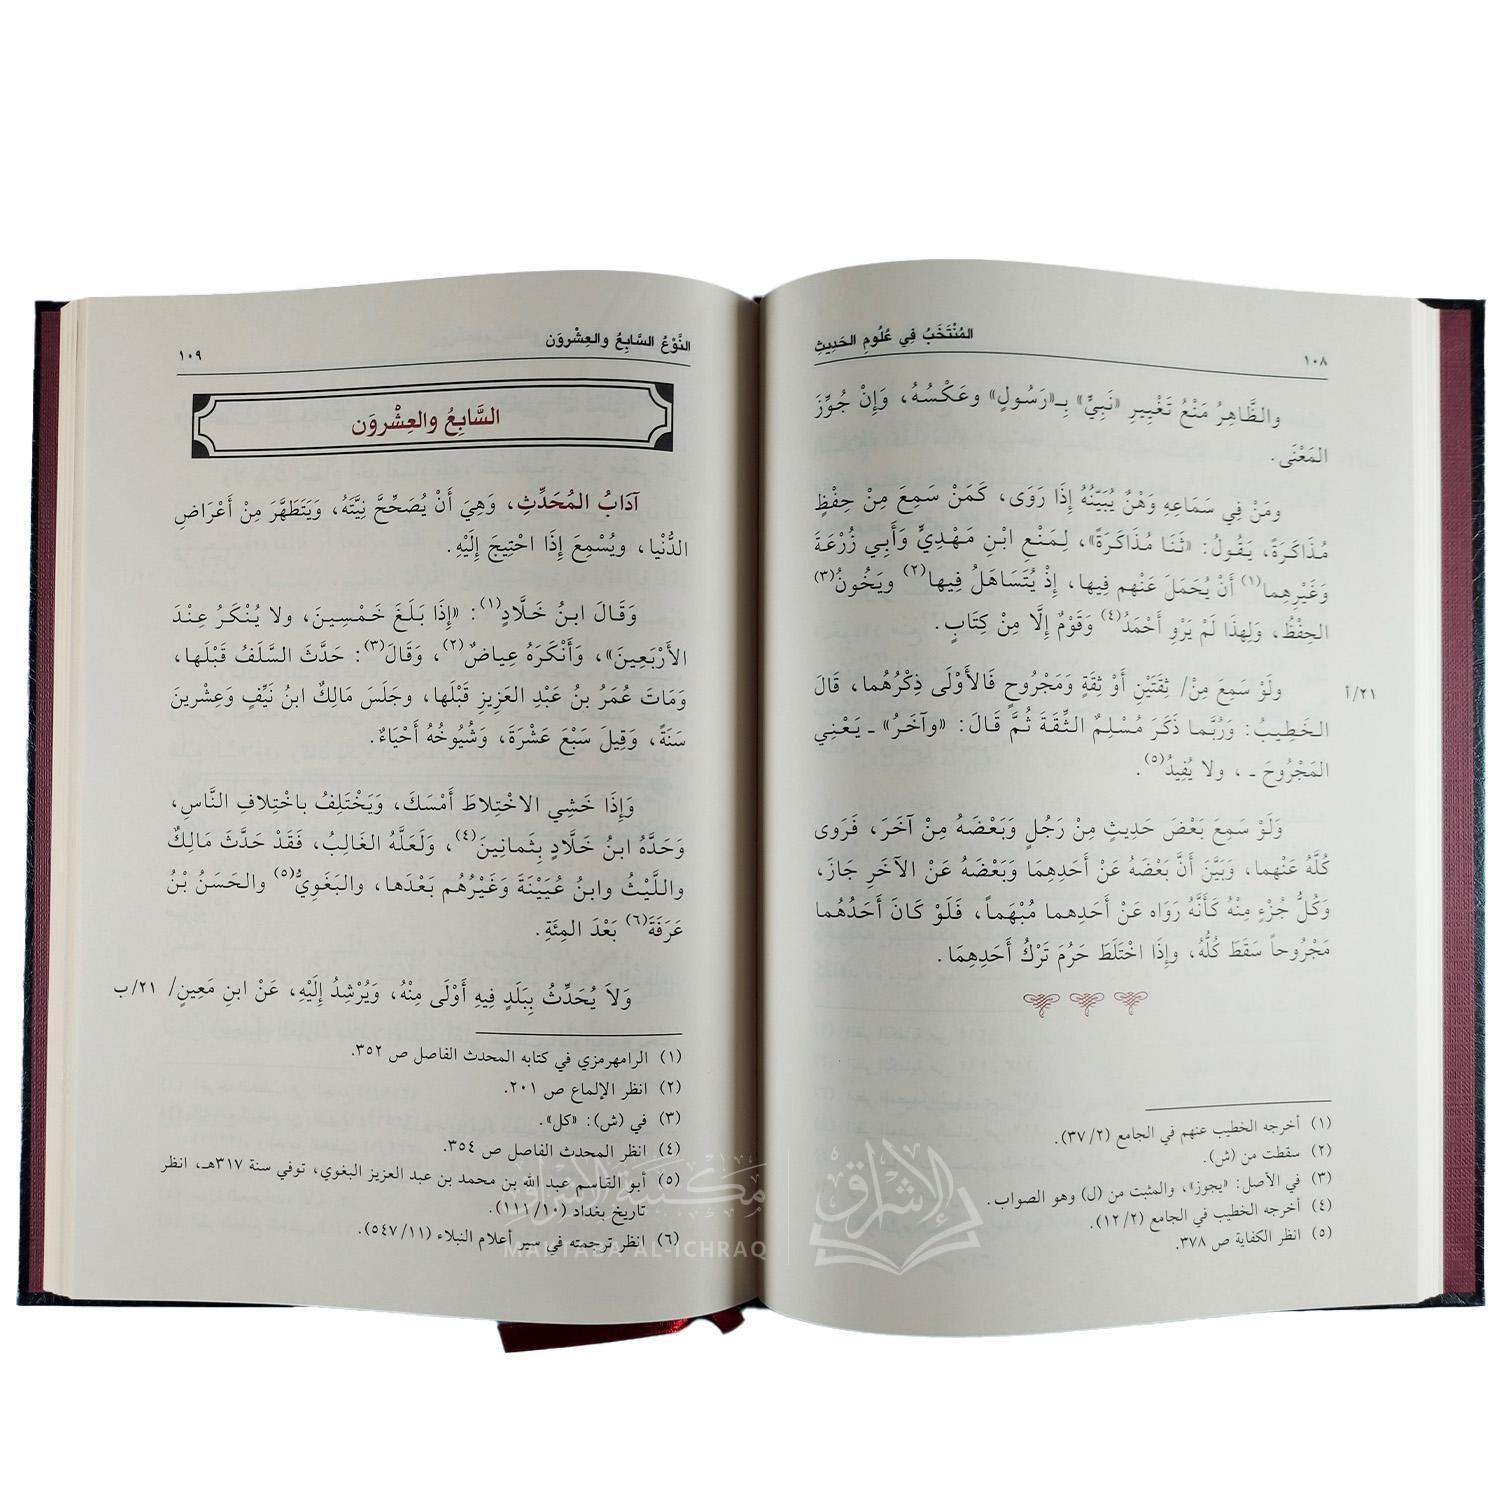 المُنْتَخَبُ فِي عُلُومِ الحَدِيثِ
١٠٨
والظَّاهِرُ مَنْعُ تَغْيِيرِ «نَبِيٍّ» بِـ«رَسُولٍ» وعَكْسُهُ، وَإِنْ جُوِّزَ
المَعْنَى.
ومَنْ فِي سَمَاعِهِ وَهْنٌ يُبَيِّنُهُ إِذَا رَوَى، كَمَنْ سَمِعَ مِنْ حِفْظٍ
مُذَاكَرَةً، يَقُولُ: «ثَنَا مُذَاكَرَةً»، لِمَنْعِ ابْنِ مَهْدِيٍّ وَأَبِي زُرْعَةَ
وَغَيْرِهِما(١) أَنْ يُحَمَلَ عَنْهم فِيها، إِذْ يُتَسَاهَلُ فِيها(٢) ويَخُونُ(٣)
الحِفْظُ، وَلِهذَا لَمْ يَرْوِ أَحْمَدُ(٤) وَقَوْمٌ إِلَّا مِنْ كِتَابٍ.
ولَوْ سَمِعَ مِنْ/ ثِقَتَيْنِ أَوْ ثِقَةٍ وَمَجْرُوحٍ فَالأَوْلَى ذِكْرُهُما، قَالَ
٢١/أ
الخَطِيبُ: وَرُبَّما ذَكَرَ مُسْلِمٌ الثِّقَةَ ثُمَّ قَالَ: «وآخَرُ» ـ يَعْنِي
المَجْرُوحَ ـ، ولا يُفِيدُ(٥).
وَلَوْ سَمِعَ بَعْضَ حَدِيثٍ مِنْ رَجُلٍ وَبَعْضَهُ مِنْ آخَرَ، فَرَوى
كُلَّهُ عَنْهما، وَبَيَّنَ أَنَّ بَعْضَهُ عَنْ أَحَدِهِمَا وَبَعْضَهُ عَنْ الآخَرِ جَازَ،
وَكُلُّ جُزْءٍ مِنْهُ كَأَنَّهُ رَوَاه عَنْ أَحَدِهِما مُبْهَماً، فَلَوْ كَانَ أَحَدُهُما
مَجْرُوحاً سَقَطَ كُلُّهُ، وإِذَا اخْتَلَطَ حَرُمَ تَرْكُ أَحَدِهِمَا.
(١) أخرجه الخطيب عنهم في الجامع (٢/ ٣٧).
(٢) سقطت من (ش).
(٣) في الأصل: «يجوز»، والمثبت من (ل) وهو الصواب.
(٤) أخرجه الخطيب في الجامع (٢/ ١٢).
(٥) انظر الكفاية ص ٣٧٨.
النَّوْعُ السَّابِعُ والعِشْروَن
١٠٩
السَّابِعُ والعِشْروَن
آدَابُ المُحَدِّثِ، وَهِيَ أَنْ يُصَحِّحَّ نِيَّتَهُ، وَيَتَطَهَّرَ مِنْ أَعْرَاضِ
الدُّنْيا، ويُسْمِعَ إِذَا احْتِيجَ إِلَيْهِ.
وَقَالَ ابنُ خَلَّادٍ(١): «إِذَا بَلَغَ خَمْسِينَ، ولا يُنْكَرُ عِنْدَ
الأَرْبَعِينَ»، وَأَنْكَرَهُ عِياضٌ(٢)، وَقَالَ(٣): حَدَّثَ السَّلَفُ قَبْلَها،
وَمَاتَ عُمَرُ بنُ عَبْدِ العَزِيزِ قَبْلَها، وجَلَسَ مَالِكٌ ابنُ نَيِّفٍ وَعِشْرينَ
سَنَةً، وَقِيلَ سَبْعَ عَشْرَةَ، وَشُيُوخُهُ أَحْيَاءٌ.
وَإِذَا خَشِي الاخْتِلاطَ أَمْسَكَ، وَيَخْتَلِفُ بـاخْتِلافِ النَّاسِ،
وَحَدَّهُ ابنُ خَلَّادٍ بِثَمانِينَ(٤)، وَلَعَلَّهُ الغَالِبُ، فَقَدْ حَدَّثَ مَالِكٌ
واللَّيْثُ وابنُ عُيَيْنَةَ وَغَيْرُهُم بَعْدَها، والبَغَوِيُّ(٥) والحَسَنُ بْنُ
عَرَفَةَ(٦) بَعْدَ المِئَةِ.
وَلاَ يُحَدِّثُ بِبَلَدٍ فِيهِ أَوْلَى مِنْهُ، وَيُرْشِدُ إِلَيْهِ، عَنْ ابنِ مَعِينٍ/ ٢١/ب
(١) الرامهرمزي في كتابه المحدث الفاصل ص ٣٥٢.
(٢) انظر الإلماع ص ٢٠١.
(٣) في (ش): «كل».
(٤) انظر المحدث الفاصل ص ٣٥٤.
(٥) أبو القاسم عبد الله بن محمد بن عبد العزيز البغوي، توفي سنة ٣١٧هـ، انظر
تاريخ بغداد (١٠/ ١١١).
(٦) انظر ترجمته في سير أعلام النبلاء (١١/ ٥٤٧).
مكتبة الإشراق
MAKTABA AL-ICHRAQ
الإشراق